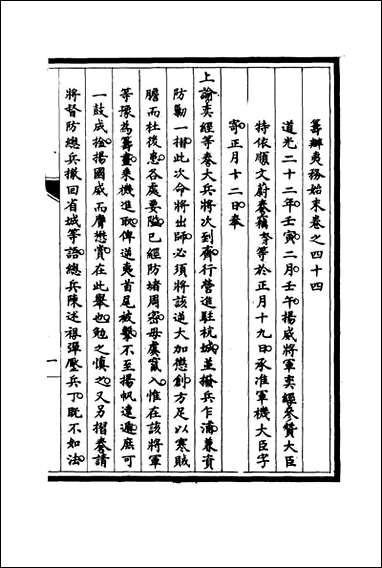 籌辦夷務始末卷之四十四
道光二十二年壬寅二月壬午揚威將軍奕經參贊大臣
特依順文蔚奏竊等於正月十九日承准軍機大臣字
寄正月十二日奉
上諭奕經等奏大兵將次到齊行營進駐杭城並撥兵乍浦兼資
防勦一摺此次命將出師必須將該逆大加懲創方足以寒賊
膽而杜後患各處要隘已經防堵周密毋虞竄入惟在該將軍
等豫為籌畫乘機進取俾逆夷首尾被擊不至揚帆遠遁庶可
一鼓成擒揚國威而膺懋賞在此舉也勉之慎之又另摺奏請
將督防總兵撤回省城等語總兵陳述祖彈壓兵丁既不如法
一